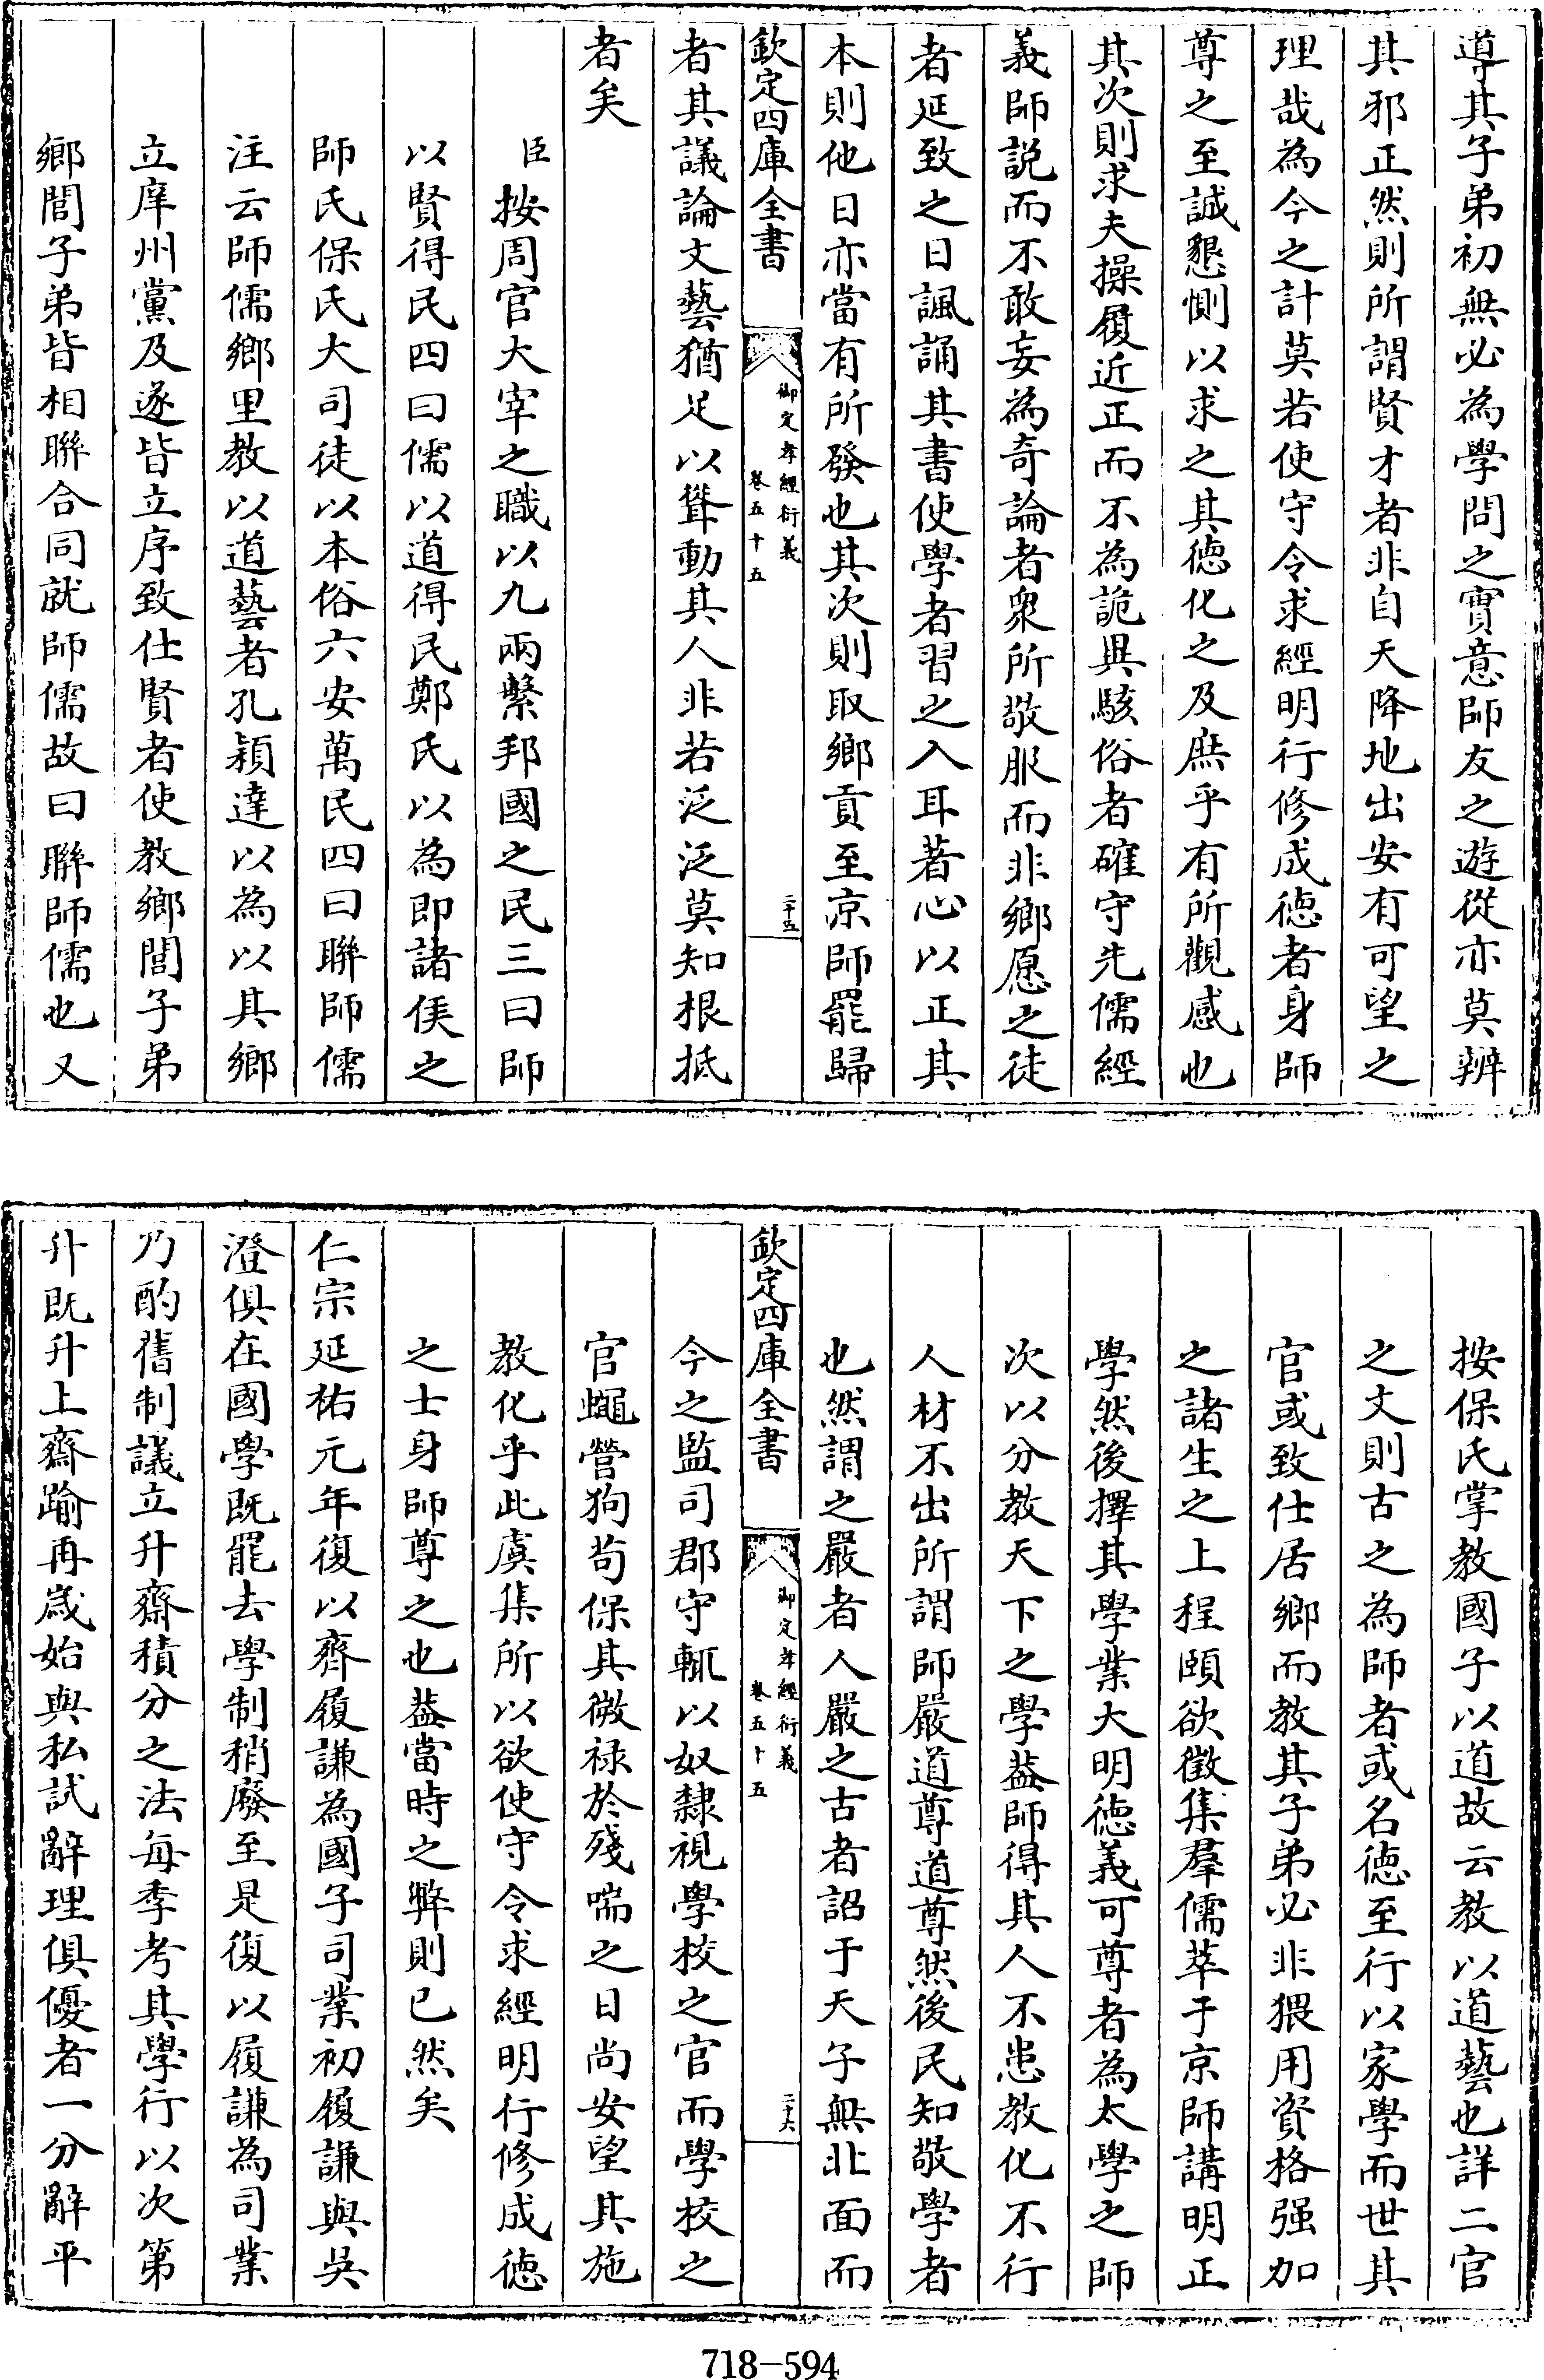 導其子弟初無必為學問之實意師友之遊從亦莫辨
其邪正然則所謂賢才者非自天降地出安有可望之
理哉為今之計莫若使守令求經明行修成徳者身師
尊之至誠懇惻以求之其徳化之及庶乎有所觀感也
其次則求夫操履近正而不為詭異駭俗者確守先儒經
義師説而不敢妄為奇論者衆所敬服而非鄉愿之徒
者延致之日諷誦其書使學者習之入耳著心以正其
本則他日亦當有所發也其次則取鄉貢至京師罷歸
欽定四庫全書
御定孝經衍義
卷五十五
二十五
者其議論文藝猶足以聳動其人非若泛泛莫知根柢
者矣
臣按周官大宰之職以九兩繫邦國之民三曰師
以賢得民四曰儒以道得民鄭氏以為即諸侯之
師氏保氏大司徒以本俗六安萬民四曰聯師儒
注云師儒鄉里教以道藝者孔穎達以為以其鄉
立庠州黨及遂皆立序致仕賢者使教鄉閭子弟
鄉閭子弟皆相聯合同就師儒故曰聯師儒也又
按保氏掌教國子以道故云教以道藝也詳二官
之文則古之為師者或名徳至行以家學而世其
官或致仕居鄉而教其子弟必非猥用資格强加
之諸生之上程頤欲徵集羣儒萃于京師講明正
學然後擇其學業大明徳義可尊者為太學之師
次以分教天下之學葢師得其人不患教化不行
人材不出所謂師嚴道尊道尊然後民知敬學者
也然謂之嚴者人嚴之古者詔于天子無北面而
欽定四庫全書
御定孝經衍義
卷五十五
二十六
今之監司郡守輒以奴隸視學校之官而學校之
官蠅營狗苟保其微禄於殘喘之日尚安望其施
教化乎此虞集所以欲使守令求經明行修成徳
之士身師尊之也葢當時之弊則已然矣
仁宗延祐元年復以齊履謙為國子司業初履謙與吳
澄俱在國學既罷去學制稍廢至是復以履謙為司業
乃酌舊制議立升齋積分之法每季考其學行以次第
升既升上齋踰再歲始與私試辭理俱優者一分辭平
718-594